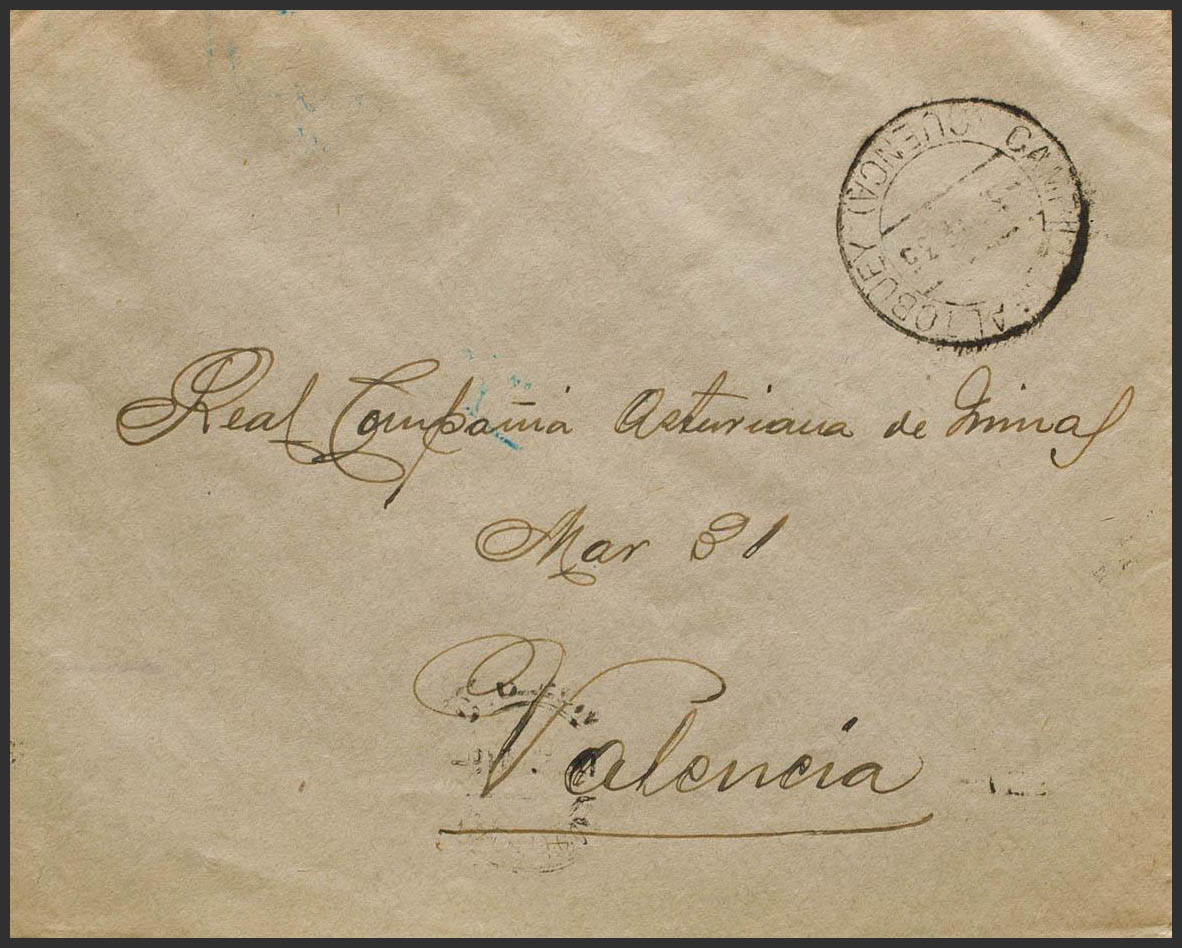 CAMPILLO ALTOBUEY (CUENCA)
Real Compañia Asturiana de Minas
Mar 31
Valencia